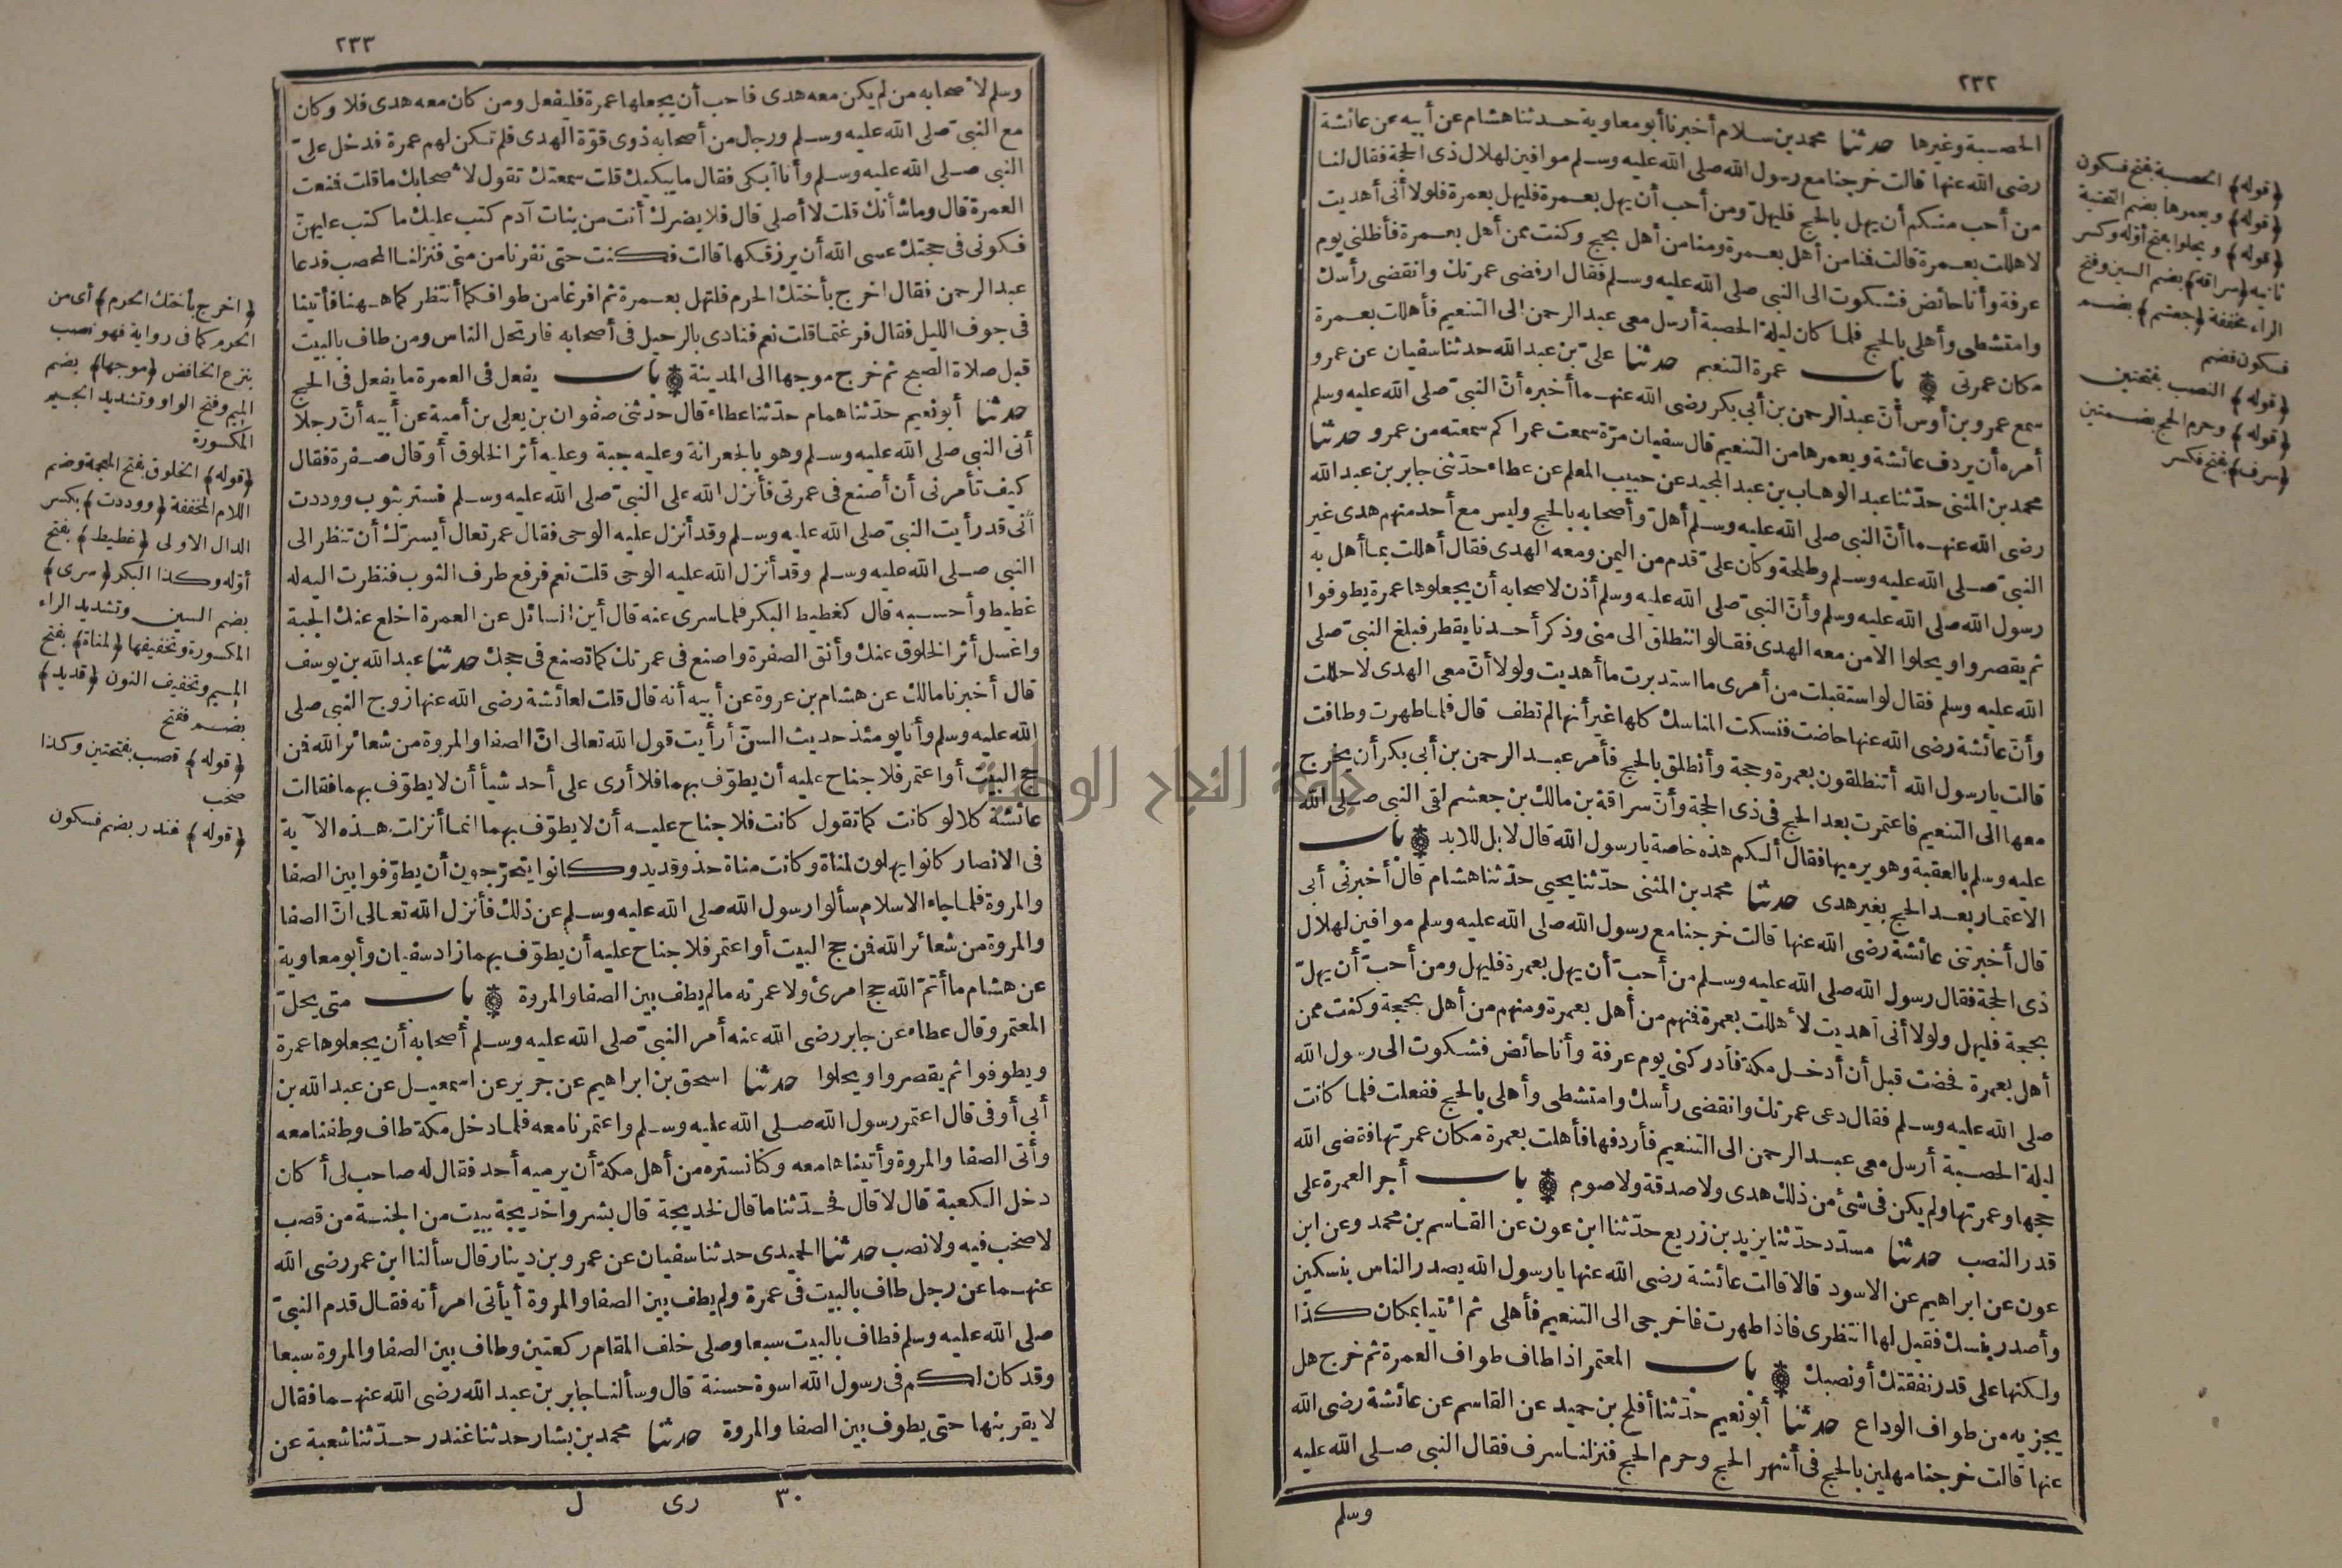 ٢٣٢
الحصبة وغيرها حدثنا محمد بن سلام أخبرنا أبو معاوية حدثنا هشام عن أبيه عن عائشة
رضى الله عنها قالت خرجنا مع رسول الله صلى الله عليه وسلم موافين لهلال ذى الحجة فقال لنا
من أحب منكم أن يهل بالحج فليهلّ ومن أحب أن يهل بعمرة فليهل بعمرة فلولا أنى أهديت
لاهللت بعمرة قالت فمنا من أهل بعمرة ومنا من أهل بحج وكنت ممن أهل بعمرة فأظلنى يوم
عرفة وأنا حائض فشكوت الى النبى صلى الله عليه وسلم فقال ارفضى عمرتك وانقضى رأسك
وامتشطى وأهلى بالحج فلما كان ليلة الحصبة أرسل معى عبد الرحمن الى التنعيم فأهللت بعمرة
مكان عمرتى باب عمرة التنعيم حدثنا علىّ بن عبد الله حدثنا سفيان عن عمرو
سمع عمرو بن أوس أنّ عبد الرحمن بن أبى بكر رضى الله عنهما أخبره أنّ النبىّ صلى الله عليه وسلم
أمره أن يردف عائشة ويعمرها من التنعيم قال سفيان مرّة سمعت عمرا كم سمعته من عمرو حدثنا
محمد بن المثنى حدّثنا عبد الوهاب بن عبد المجيد عن حبيب المعلم عن عطاء حدّثنى جابر بن عبد الله
رضى الله عنهما أنّ النبى صلى الله عليه وسلم أهلّ وأصحابه بالحج وليس مع أحد منهم هدى غير
النبىّ صلى الله عليه وسلم وطلحة وكان علىّ قدم من اليمن ومعه الهدى فقال أهللت بما أهل به
رسول الله صلى الله عليه وسلم وأنّ النبىّ صلى الله عليه وسلم أذن لاصحابه أن يجعلوها عمرة يطوفوا
ثم يقصروا ويحلوا الا من معه الهدى فقالوا ننطلق الى منى وذكر أحدنا يقطر فبلغ النبىّ صلى
الله عليه وسلم فقال لو استقبلت من أمرى ما استدبرت ما أهديت ولولا أنّ معى الهدى لاحللت
وأنّ عائشة رضى الله عنها حاضت فنسكت المناسك كلها غير أنها لم تطف قال فلما طهرت وطافت
قالت يا رسول الله أتنطلقون بعمرة وحجة وأنطلق بالحج فأمر عبد الرحمن بن أبى بكر أن يخرج
معها الى التنعيم فاعتمرت بعد الحج فى ذى الحجة وأنّ سراقة بن مالك بن جعشم لقى النبى صلى الله
عليه وسلم بالعقبة وهو يرميها فقال ألكم هذه خاصة يا رسول الله قال لا بل للابد باب
الاعتمار بعد الحج بغير هدى حدثنا محمد بن المثنى حدّثنا يحيى حدّثنا هشام قال أخبرنى أبى
قال أخبرتنى عائشة رضى الله عنها قالت خرجنا مع رسول الله صلى الله عليه وسلم موافين لهلال
ذى الحجة فقال رسول الله صلى الله عليه وسلم من أحبّ أن يهل بعمرة فليهل ومن أحبّ أن يهلّ
بحجة فليهل ولولا أنى أهديت لأهللت بعمرة فمنهم من أهل بعمرة ومنهم من أهل بحجة وكنت ممن
أهل بعمرة فحضت قبل أن أدخل مكة فأدركنى يوم عرفة وأنا حائض فشكوت الى رسول الله
صلى الله عليه وسلم فقال دعى عمرتك وانقضى رأسك وامتشطى وأهلى بالحج ففعلت فلما كانت
ليلة الحصبة أرسل معى عبد الرحمن الى التنعيم فأردفها فأهلت بعمرة مكان عمرتها فقضى الله
حجها وعمرتها ولم يكن فى شئ من ذلك هدى ولا صدقة ولا صوم باب أجر العمرة على
قدر النصب حدثنا مسدّد حدّثنا يزيد بن زريع حدّثنا ابن عون عن القاسم بن محمد وعن ابن
عون عن ابراهيم عن الاسود قالا قالت عائشة رضى الله عنها يا رسول الله يصدر الناس بنسكين
وأصدر بنسك فقيل لها انتظرى فاذا طهرت فاخرجى الى التنعيم فأهلى ثم ائتيا بمكان كذا
ولكنها على قدر نفقتك أو نصبك باب المعتمر اذا طاف طواف العمرة ثم خرج هل
يجزيه من طواف الوداع حدثنا أبو نعيم حدّثنا أفلح بن حميد عن القاسم عن عائشة رضى الله
عنها قالت خرجنا مهلين بالحج فى أشهر الحج وحرم الحج فنزلنا سرف فقال النبى صلى الله عليه
وسلم
﴿قوله﴾ الحصبة بفتح فسكون
﴿قوله﴾ ويعمرها بضم التحتية
﴿قوله﴾ ويحلوا بفتح أوّله وكسر
ثانيه ﴿سراقة﴾ بضم السين وفتح
الراء مخففة ﴿جعشم﴾ بضم
فسكون فضم
﴿قوله﴾ النصب بفتحتين
﴿قوله﴾ وحرم الحج بضمتين
﴿سرف﴾ بفتح فكسر
٢٣٣
وسلم لأصحابه من لم يكن معه هدى فاحب أن يجعلها عمرة فليفعل ومن كان معه هدى فلا وكان
مع النبىّ صلى الله عليه وسلم ورجال من أصحابه ذوى قوّة الهدى فلم تكن لهم عمرة فدخل علىّ
النبى صلى الله عليه وسلم وأنا أبكى فقال ما يبكيك قلت سمعتك تقول لأصحابك ما قلت فمنعت
العمرة قال وما شأنك قلت لا أصلى قال فلا يضرك أنت من بنات آدم كتب عليك ما كتب عليهنّ
فكونى فى حجتك عسى الله أن يرزقكها قالت فكنت حتى نفرنا من منى فنزلنا المحصب فدعا
عبد الرحمن فقال اخرج بأختك الحرم فلتهل بعمرة ثم افرغا من طوافكما أنتظركما ههنا فأتينا
فى جوف الليل فقال فرغتما قلت نعم فنادى بالرحيل فى أصحابه فارتحل الناس ومن طاف بالبيت
قبل صلاة الصبح ثم خرج موجها الى المدينة باب يفعل فى العمرة ما يفعل فى الحج
حدثنا أبو نعيم حدّثنا همام حدّثنا عطاء قال حدّثنى صفوان بن يعلى بن أمية عن أبيه أنّ رجلا
أتى النبى صلى الله عليه وسلم وهو بالجعرانة وعليه جبة وعليه أثر الخلوق أو قال صفرة فقال
كيف تأمرنى أن أصنع فى عمرتى فأنزل الله على النبىّ صلى الله عليه وسلم فستر بثوب ووددت
أنى قد رأيت النبىّ صلى الله عليه وسلم وقد أنزل عليه الوحى فقال عمر تعال أيسرّك أن تنظر الى
النبى صلى الله عليه وسلم وقد أنزل الله عليه الوحى قلت نعم فرفع طرف الثوب فنظرت اليه له
غطيط وأحسبه قال كغطيط البكر فلما سرى عنه قال أين السائل عن العمرة اخلع عنك الجبة
واغسل أثر الخلوق عنك وأنق الصفرة واصنع فى عمرتك كما تصنع فى حجك حدثنا عبد الله بن يوسف
قال أخبرنا مالك عن هشام بن عروة عن أبيه أنه قال قلت لعائشة رضى الله عنها زوج النبى صلى
الله عليه وسلم وأنا يومئذ حديث السنّ أرأيت قول الله تعالى انّ الصفا والمروة من شعائر الله فمن
حج البيت أو اعتمر فلا جناح عليه أن يطوّف بهما فلا أرى على أحد شيأ أن لا يطوّف بهما فقالت
عائشة كلا لو كانت كما تقول كانت فلا جناح عليه أن لا يطوّف بهما انما أنزلت هذه الآية
فى الانصار كانوا يهلون لمناة وكانت مناة حذو قديد وكانوا يتحرّجون أن يطوّفوا بين الصفا
والمروة فلما جاء الاسلام سألوا رسول الله صلى الله عليه وسلم عن ذلك فأنزل الله تعالى انّ الصفا
والمروة من شعائر الله فمن حج البيت أو اعتمر فلا جناح عليه أن يطوّف بهما زاد سفيان وأبو معاوية
عن هشام ما أتمّ الله حج امرئ ولا عمرته ما لم يطف بين الصفا والمروة باب متى يحلّ
المعتمر وقال عطاء عن جابر رضى الله عنه أمر النبىّ صلى الله عليه وسلم أصحابه أن يجعلوها عمرة
ويطوفوا ثم يقصروا ويحلوا حدثنا اسحق بن ابراهيم عن جرير عن اسمعيل عن عبد الله بن
أبى أوفى قال اعتمر رسول الله صلى الله عليه وسلم واعتمرنا معه فلما دخل مكة طاف وطفنا معه
وأتى الصفا والمروة وأتيناها معه وكنا نستره من أهل مكة أن يرميه أحد فقال له صاحب لى أكان
دخل الكعبة قال لا قال فحدّثنا ما قال لخديجة قال بشروا خديجة ببيت من الجنة من قصب
لا صخب فيه ولا نصب حدثنا الحميدى حدثنا سفيان عن عمرو بن دينار قال سألنا ابن عمر رضى الله
عنهما عن رجل طاف بالبيت فى عمرة ولم يطف بين الصفا والمروة أيأتى امرأته فقال قدم النبىّ
صلى الله عليه وسلم فطاف بالبيت سبعا وصلى خلف المقام ركعتين وطاف بين الصفا والمروة سبعا
وقد كان لكم فى رسول الله اسوة حسنة قال وسألنا جابر بن عبد الله رضى الله عنهما فقال
لا يقربنها حتى يطوف بين الصفا والمروة حدثنا محمد بن بشار حدثنا غندر حدّثنا شعبة عن
٣٠ رى ل
﴿اخرج بأختك الحرم﴾ أى من
الحرم كما فى رواية فهو نصب
بنزع الخافض ﴿موجها﴾ بضم
الميم وفتح الواو وتشديد الجيم
المكسورة
﴿قوله﴾ الخلوق بفتح المعجمة وضم
اللام المخففة ﴿ووددت﴾ بكسر
الدال الاولى ﴿غطيط﴾ بفتح
أوّله وكذا البكر ﴿سرى﴾
بضم السين وتشديد الراء
المكسورة وتخفيفها ﴿لمناة﴾ بفتح
الميم وتخفيف النون ﴿قديد﴾
بضم ففتح
﴿قوله﴾ قصب بفتحتين وكذا
صخب
﴿قوله﴾ غندر بضم فسكون
جامعة النجاح الوطنية